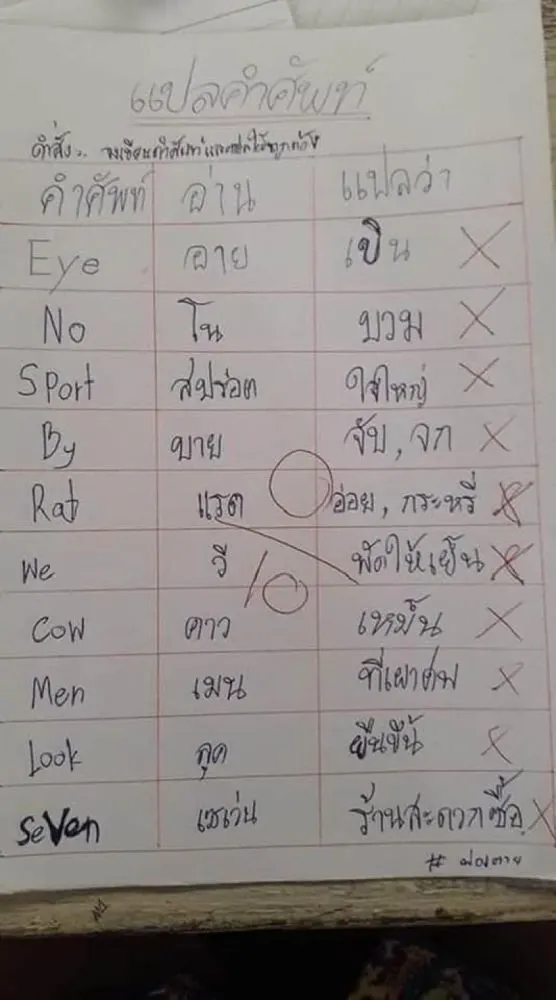 แปลคำศัพท์
คำสั่ง.. จงเขียนคำศัพท์และแปลให้ถูกต้อง
คำศัพท์ อ่าน แปลว่า
Eye อาย เขิน
No โน บวม
Sport สปอร์ต ใจใหญ่
By บาย จับ, จก
Rat แรด อ่อย, กระหรี่
We วี พัดให้เย็น
Cow คาว เหม็น
Men เมน ที่เผาศพ
Look ลุก ยืนขึ้น
Seven เซเว่น ร้านสะดวกซื้อ
0/10
#